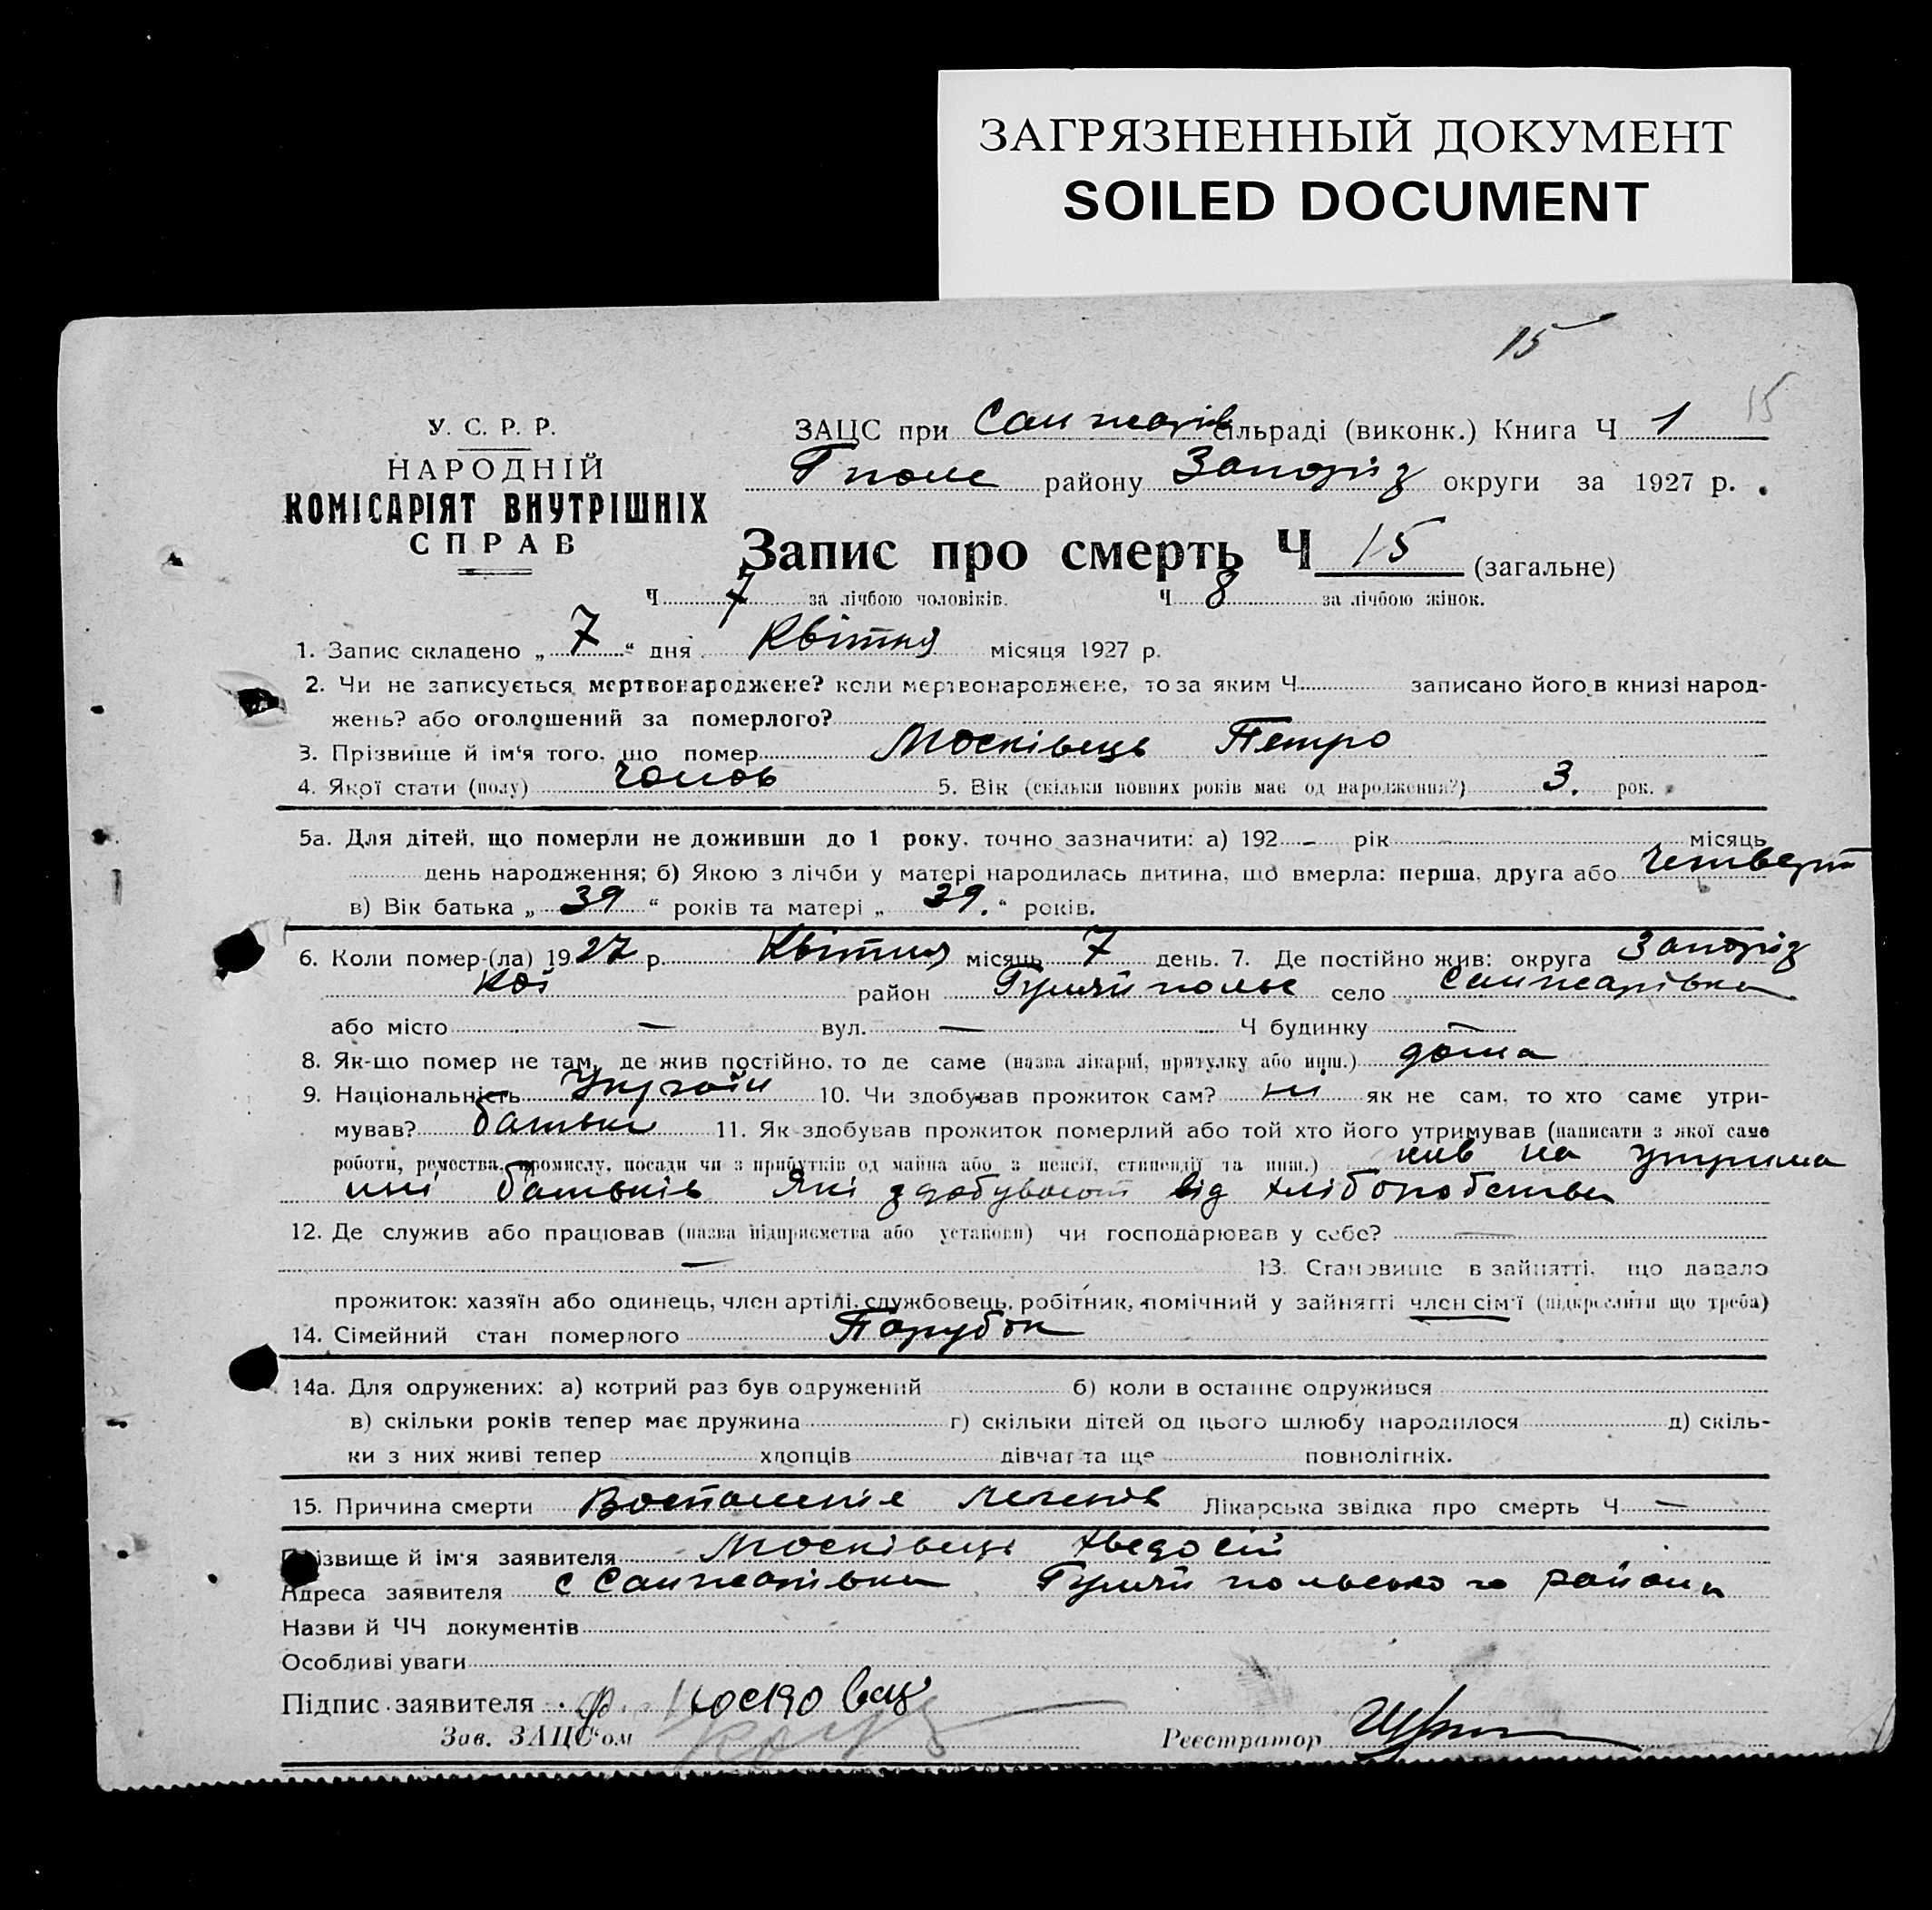 ЗАГРЯЗНЕННЫЙ ДОКУМЕНТ
SOILED DOCUMENT
15
15
У. С. Р. Р.
НАРОДНІЙ
КОМІСАРІЯТ ВНУТРІШНІХ
СПРАВ
ЗАЦС при Санжарів сільраді (виконк.) Книга Ч 1
Гполе району Запоріз округи за 1927 р.
Запис про смерть Ч 15 (загальне)
Ч 7 за лічбою чоловіків. Ч 8 за лічбою жінок.
1. Запис складено „ 7 “ дня Квітня місяця 1927 р.
2. Чи не записується мертвонароджене? коли мертвонароджене, то за яким Ч записано його в книзі народ-
жень? або оголошений за померлого?
3. Прізвище й ім'я того, що помер Москівець Петро
4. Якої стати (полу) чолов 5. Вік (скільки повних років має од народження?) 3. рок.
5а. Для дітей, що померли не доживши до 1 року, точно зазначити: а) 192 - рік місяць
день народження; б) Якою з лічби у матері народилась дитина, що вмерла: перша, друга або четверт
в) Вік батька „ 39 “ років та матері „ 39. “ років.
6. Коли помер-(ла) 1927 р. Квітня місяць 7 день. 7. Де постійно жив: округа Запоріз
кої район Гуляйполье село Санжарівка
або місто — вул. — Ч будинку —
8. Як-що помер не там, де жив постійно, то де саме (назва лікарні, притулку або инш.) дома
9. Національність Україн 10. Чи здобував прожиток сам? ні як не сам, то хто саме утри-
мував? батьки 11. Як здобував прожиток померлий або той хто його утримував (написати з якої саме
роботи, ремества, промислу, посади чи з прибутків од майна або з пенсії, стипендії та инш.) жив на утрима
нні батьків які здобувают від хліборобства
12. Де служив або працював (назва підприємства або установи) чи господарював у себе? —
— 13. Становище в зайнятті, що давало
прожиток: хазяїн або одинець, член артілі, службовець, робітник, помічний у зайнятті член сім'ї (підкреслити що треба)
14. Сімейний стан померлого Парубок
14а. Для одружених: а) котрий раз був одружений б) коли в останнє одружився
в) скільки років тепер має дружина г) скільки дітей од цього шлюбу народилося д) скіль-
ки з них живі тепер хлопців дівчат та ще повнолітніх.
15. Причина смерти Воспаленіє легенів Лікарська звідка про смерть Ч —
Прізвище й ім'я заявителя Москівець Хведосій
Адреса заявителя с Санжарівка Гуляйпольського района
Назви й ЧЧ документів
Особливі уваги
Підпис заявителя
Зав. ЗАЦС'ом Реєстратор